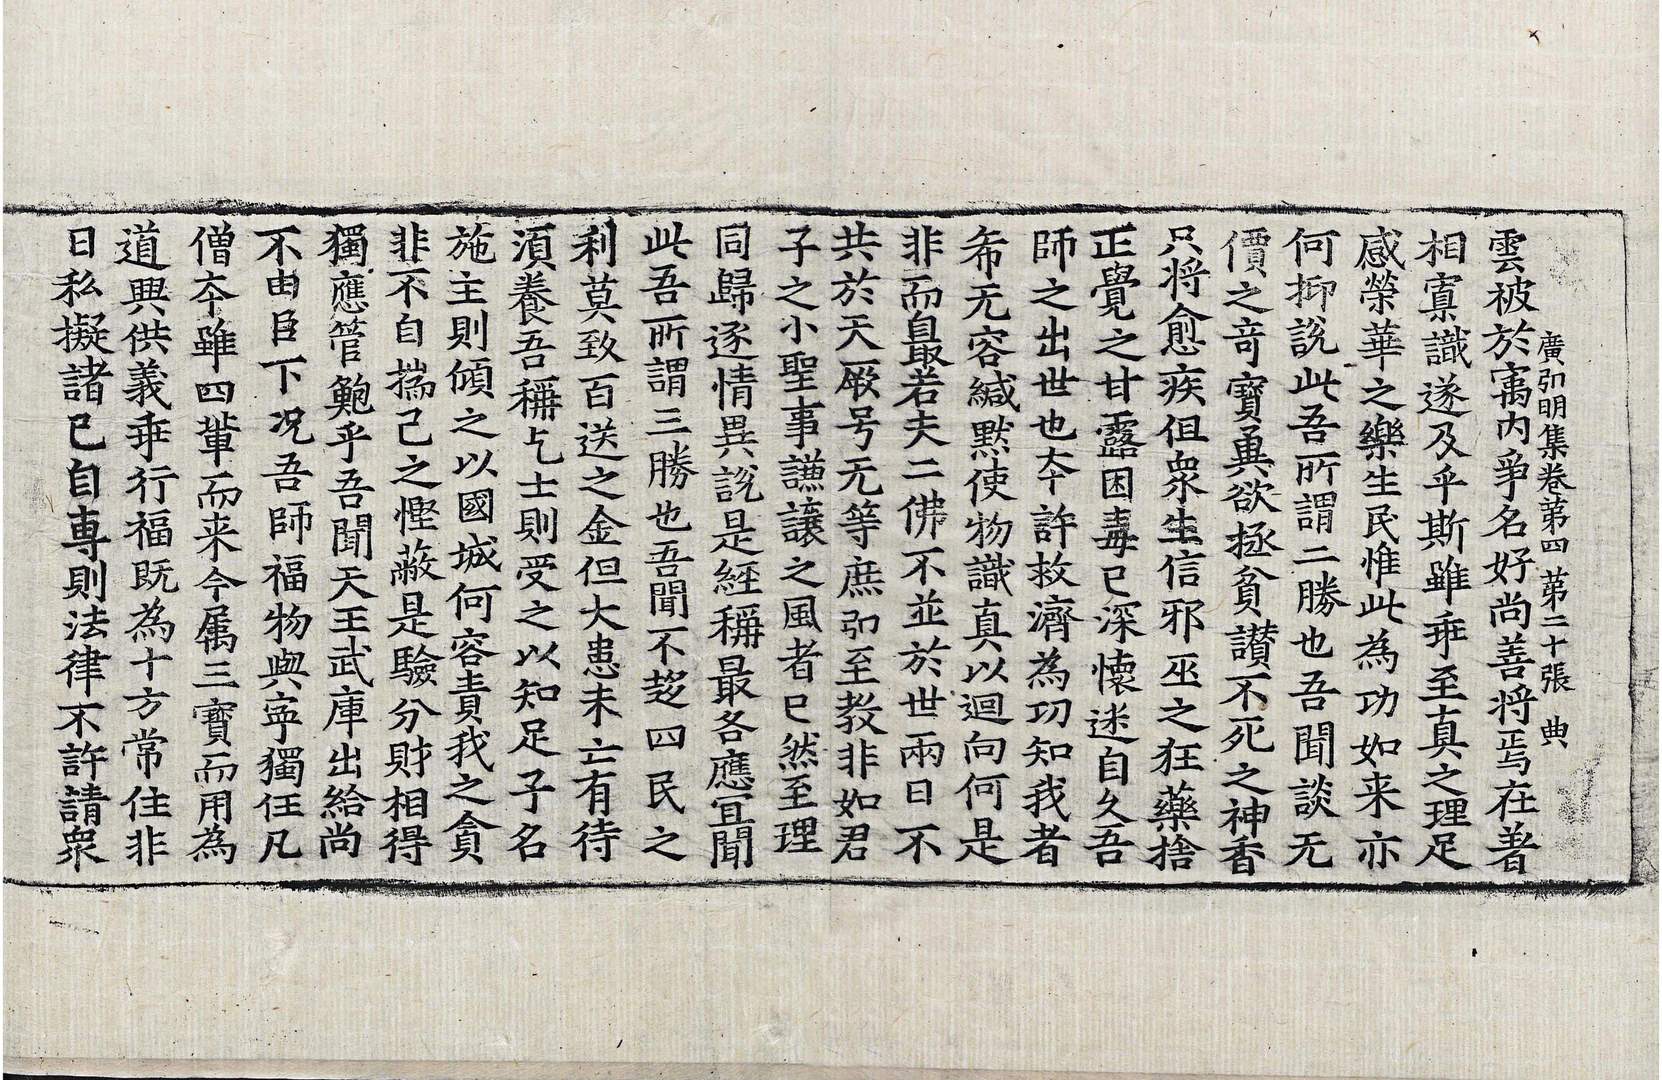 廣弘明集卷第四 第二十張 典
雲被於寓内爭名好尚善將焉在著
相寘識遂及乎斯雖乖至真之理足
感榮華之樂生民惟此為功如来亦
何抑說此吾所謂二勝也吾聞談无
價之竒寶兾欲拯貧讃不死之神香
只將愈疾但衆生信邪巫之狂藥捨
正覺之甘露困毒已深懷迷自久吾
師之出世也夲許救濟為功知我者
希无容緘黙使物識真以迴向何是
非而最若夫二佛不並於世兩日不
共於天厥号无等庶弘至教非如君
子之小聖事謙讓之風者已然至理
同歸逐情異說是經稱最各應冝聞
此吾所謂三勝也吾聞不趍四民之
利莫致百送之金但大患未亡有待
湏養吾稱乞士則受之以知足子名
施主則傾之以國城何容責我之貪
非不自揣己之慳蔽是驗分財相得
獨應管鮑乎吾聞天王武庫出給尚
不由臣下况吾師福物與寜獨任凡
僧夲雖四輩而来今屬三寳而用為
道興供義乖行福既為十方常住非
日私擬諸已自專則法律不許請衆